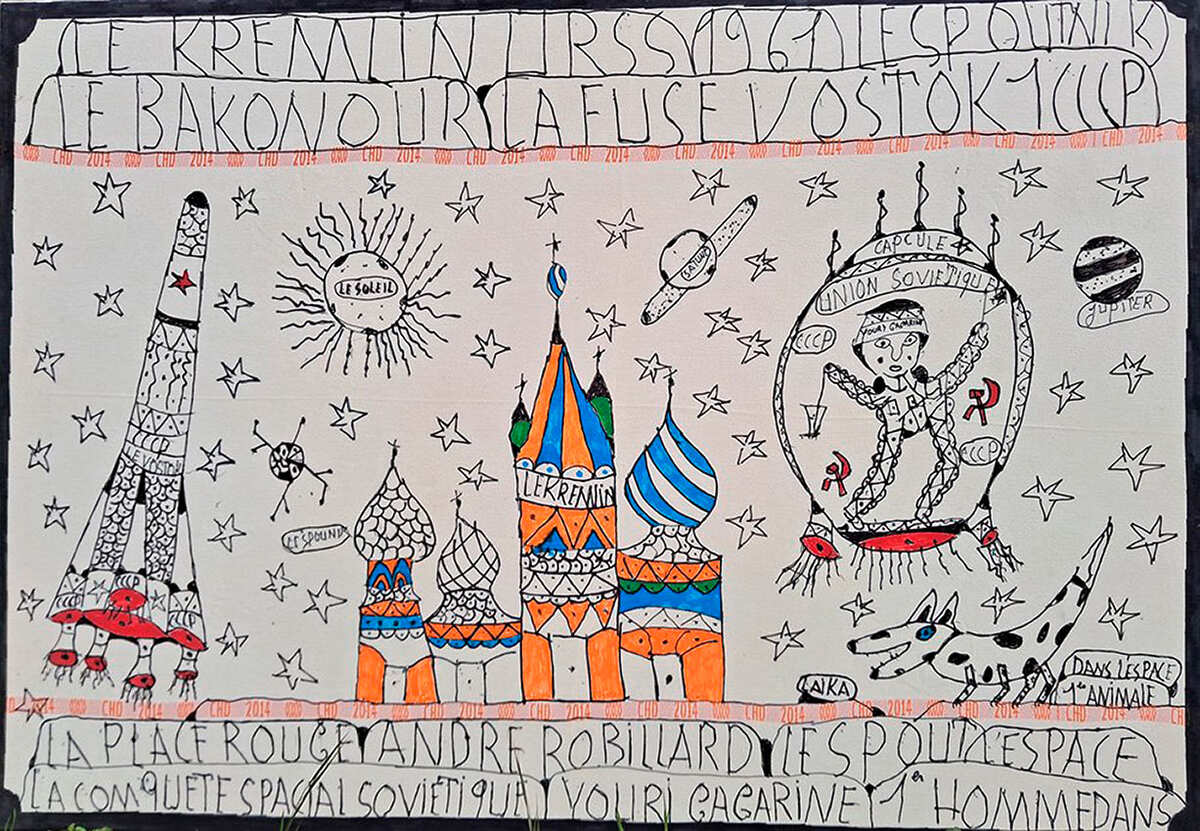 LE KREMLIN URSS 1961 LE SPOUTNIK
LE BAKONOUR LA FUSE VOSTOK 1 CCCP
CHD 2014 CHD 2014 CHD 2014 CHD 2014 CHD 2014 CHD 2014 CHD 2014 CHD 2014
CAPCULE
UNION SOVIETIQUE
SATURN
LE SOLEIL
YOURI GAGARINE
JUPITER
CCCP
CCCP
CCCP
LE VOSTOK
LE KREMLIN
LESPOUND
CCCP
CCCP
CCCP
LAIKA
DANS L'ESPACE
1er ANIMALE
CHD 2014 CHD 2014 CHD 2014 CHD 2014 CHD 2014 CHD 2014 CHD 2014 CHD
LA PLACE ROUGE ANDRE ROBILLARD LE SPOUT L'ESPACE
LA COMQUETE SPACIAL SOVIÉTIQUE YOURI GAGARINE 1er HOMME DANS